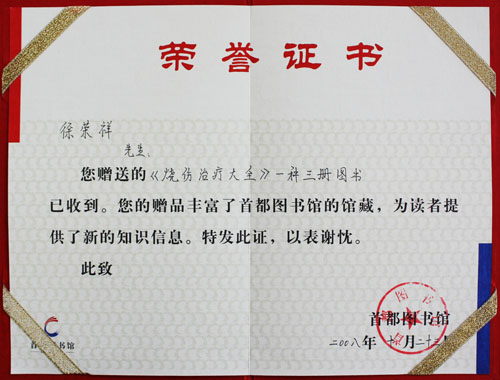 荣誉证书
徐荣祥
先生:
您赠送的《烧伤治疗大全》一种三册图书
已收到。您的赠品丰富了首都图书馆的馆藏,为读者提
供了新的知识信息。特发此证,以表谢忱。
此致
首都图书馆
二00八年 月二十二
首 书馆